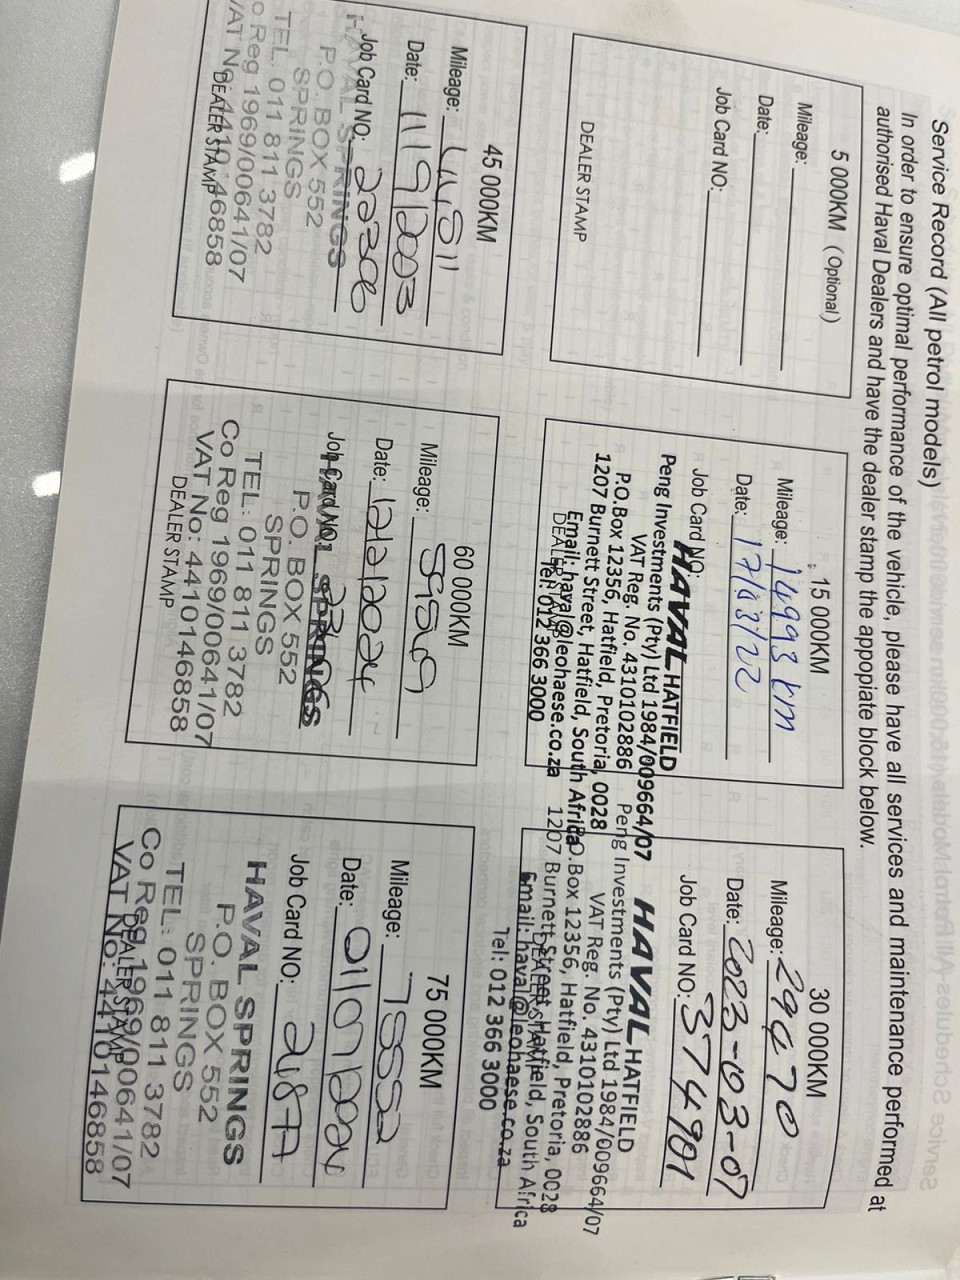 Service Record (All petrol models)
In order to ensure optimal performance of the vehicle, please have all services and maintenance performed at
authorised Haval Dealers and have the dealer stamp the appopiate block below.
5 000KM (Optional)
Mileage:
Date:
Job Card NO:
DEALER STAMP
15 000KM
Mileage: 14993 km
Date: 17/03/22
Job Card NO:
HAVAL HATFIELD
Peng Investments (Pty) Ltd 1984/009664/07
VAT Reg. No. 4310102886
P.O.Box 12356, Hatfield, Pretoria, 0028
1207 Burnett Street, Hatfield, South Africa
Email: haval@leohaese.co.za
DEALER STAMP
Tel: 012 366 3000
30 000KM
Mileage: 29470
Date: 2023-03-07
Job Card NO: 374901
HAVAL HATFIELD
Peng Investments (Pty) Ltd 1984/009664/07
VAT Reg. No. 4310102886
P.O.Box 12356, Hatfield, Pretoria, 0028
1207 Burnett Street, Hatfield, South Africa
DEALER STAMP
Email: haval@leohaese.co.za
Tel: 012 366 3000
45 000KM
Mileage: 44811
Date: 11/9/2003
Job Card NO: 22306
HAVAL SPRINGS
P.O. BOX 552
SPRINGS
TEL: 011 811 3782
Co Reg 1969/00641/07
VAT No: 4410146858
DEALER STAMP
60 000KM
Mileage:
Date: 12/2/2024
Job Card NO:
HAVAL SPRINGS
P.O. BOX 552
SPRINGS
TEL: 011 811 3782
Co Reg 1969/00641/07
VAT No: 4410146858
DEALER STAMP
75 000KM
Mileage: 75552
Date:
Job Card NO: 24877
HAVAL SPRINGS
P.O. BOX 552
SPRINGS
TEL: 011 811 3782
Co Reg 1969/00641/07
DEALER STAMP
VAT No: 4410146858